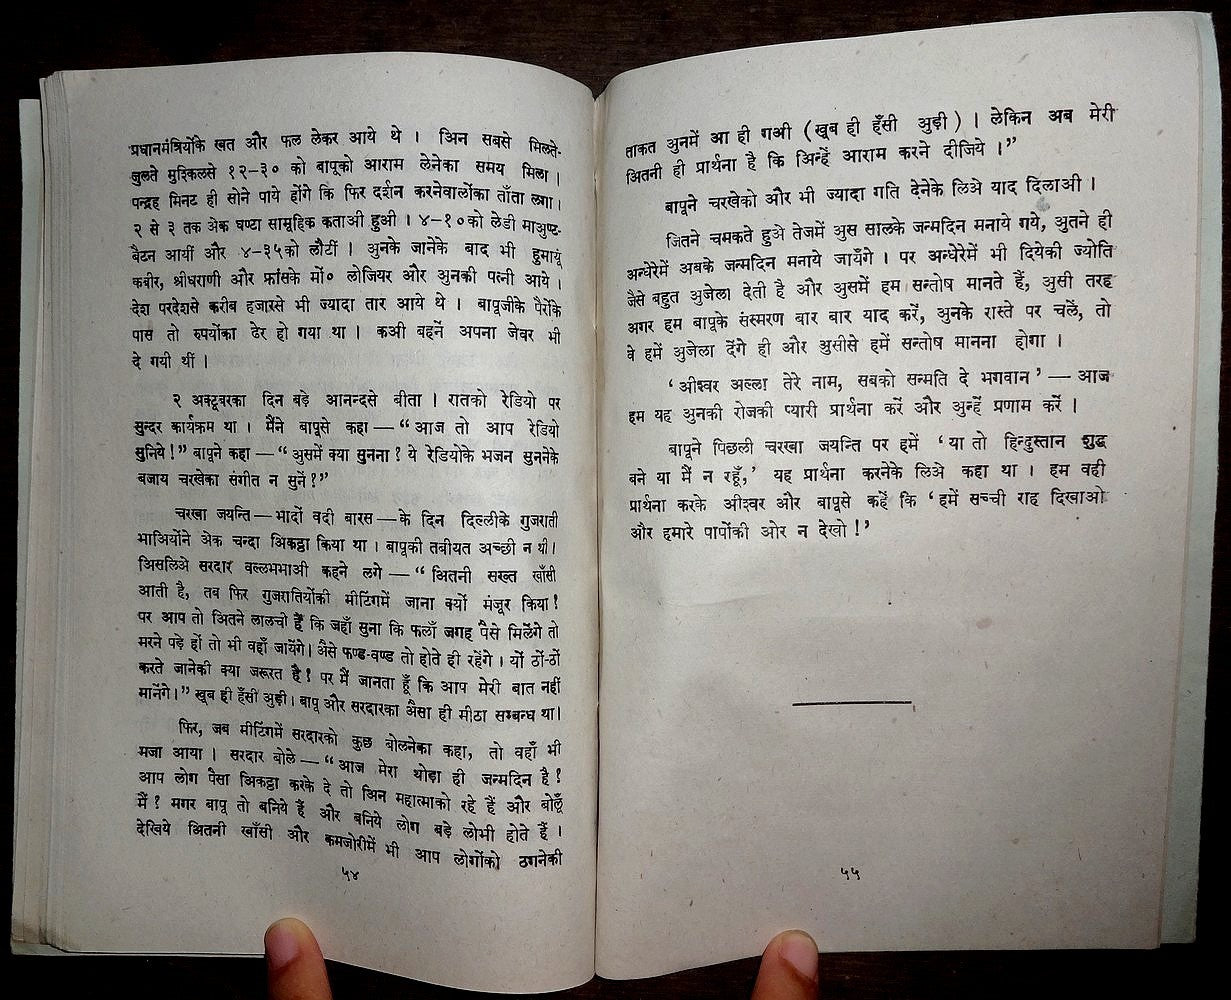 प्रधानमंत्रियोंके खत और फल लेकर आये थे । अिन सबसे मिलते-
जुलते मुश्किलसे १२-३० को बापूको आराम लेनेका समय मिला ।
पन्द्रह मिनट ही सोने पाये होंगे कि फिर दर्शन करनेवालोंका ताँता लगा ।
२ से ३ तक अेक घण्टा सामूहिक कताओी हुओी । ४-१० को लेडी माअुण्ट-
बैटन आयीं और ४-३५को लौटीं । अुनके जानेके बाद भी हुमायूं
कबीर, श्रीधराणी और फ्रांसके मों० लोजियर और अुनकी पत्नी आये ।
देश परदेशसे करीब हजारसे भी ज्यादा तार आये थे । बापूजीके पैरोंके
पास तो रुपयोंका ढेर हो गया था । कओी बहनें अपना जेवर भी
दे गयी थीं ।
२ अक्टूबरका दिन बड़े आनन्दसे बीता । रातको रेडियो पर
सुन्दर कार्यक्रम था । मैंने बापूसे कहा — “ आज तो आप रेडियो
सुनिये ! ” बापूने कहा — “ अुसमें क्या सुनना ? ये रेडियोके भजन सुननेके
बजाय चरखेका संगीत न सुनें ? ”
चरखा जयन्ति — भादों वदी बारस — के दिन दिल्लीके गुजराती
भाअियोंने अेक चन्दा अिकट्ठा किया था । बापूकी तबीयत अच्छी न थी ।
अिसलिअे सरदार वल्लभभाओी कहने लगे — “ अितनी सख्त खाँसी
आती है, तब फिर गुजरातियोंकी मीटिंगमें जाना क्यों मंजूर किया ?
पर आप तो अितने लालची हैं कि जहाँ सुना कि फलाँ जगह पैसे मिलेंगे तो
मरने पड़े हों तो भी वहाँ जायेंगे । अैसे फण्ड-वण्ड तो होते ही रहेंगे । यों ठों-ठों
करते जानेकी क्या जरूरत है ? पर मैं जानता हूँ कि आप मेरी बात नहीं
मानेंगे । ” खूब ही हँसी अुड़ी । बापू और सरदारका अैसा ही मीठा सम्बन्ध था ।
फिर, जब मीटिंगमें सरदारको कुछ बोलनेका कहा, तो वहाँ भी
मजा आया । सरदार बोले — “ आज मेरा थोड़ा ही जन्मदिन है ?
आप लोग पैसा अिकट्ठा करके दे तो अिन महात्माको रहे हैं और बोलूँ
मैं ? मगर बापू तो बनिये हैं और बनिये लोग बड़े लोभी होते हैं ।
देखिये अितनी खाँसी और कमजोरीमें भी आप लोगोंको ठगनेकी
५४
ताकत अुनमें आ ही गओी ( खूब ही हँसी अुड़ी ) । लेकिन अब मेरी
अितनी ही प्रार्थना है कि अिन्हें आराम करने दीजिये । ”
बापूने चरखेको और भी ज्यादा गति देनेके लिअे याद दिलाओी ।
जितने चमकते हुअे तेजमें अुस सालके जन्मदिन मनाये गये, अुतने ही
अन्धेरेमें अबके जन्मदिन मनाये जायँगे । पर अन्धेरेमें भी दियेकी ज्योति
जैसे बहुत अुजेला देती है और अुसमें हम सन्तोष मानते हैं, अुसी तरह
अगर हम बापूके संस्मरण बार बार याद करें, अुनके रास्ते पर चलें, तो
वे हमें अुजेला देंगे ही और अुसीसे हमें सन्तोष मानना होगा ।
‘ ओीश्वर अल्ला तेरे नाम, सबको सन्मति दे भगवान ’ — आज
हम यह अुनकी रोजकी प्यारी प्रार्थना करें और अुन्हें प्रणाम करें ।
बापूने पिछली चरखा जयन्ति पर हमें ‘ या तो हिन्दुस्तान शुद्ध
बने या मैं न रहूँ, ’ यह प्रार्थना करनेके लिअे कहा था । हम वही
प्रार्थना करके ओीश्वर और बापूसे कहें कि ‘ हमें सच्ची राह दिखाओ
और हमारे पापोंकी ओर न देखो ! ’
५५